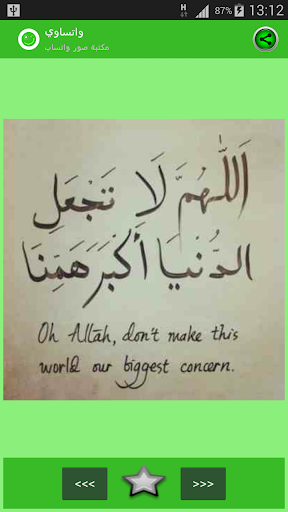 87% 13:12
واتساوي
مكتبة صور واتساب
اَللّٰهُمَّ لَا تَجْعَلِ
الدُّنْيَا أَكْبَرَ هَمِّنَا
Oh Allāh, don't make this
world our biggest concern.
<<< >>>